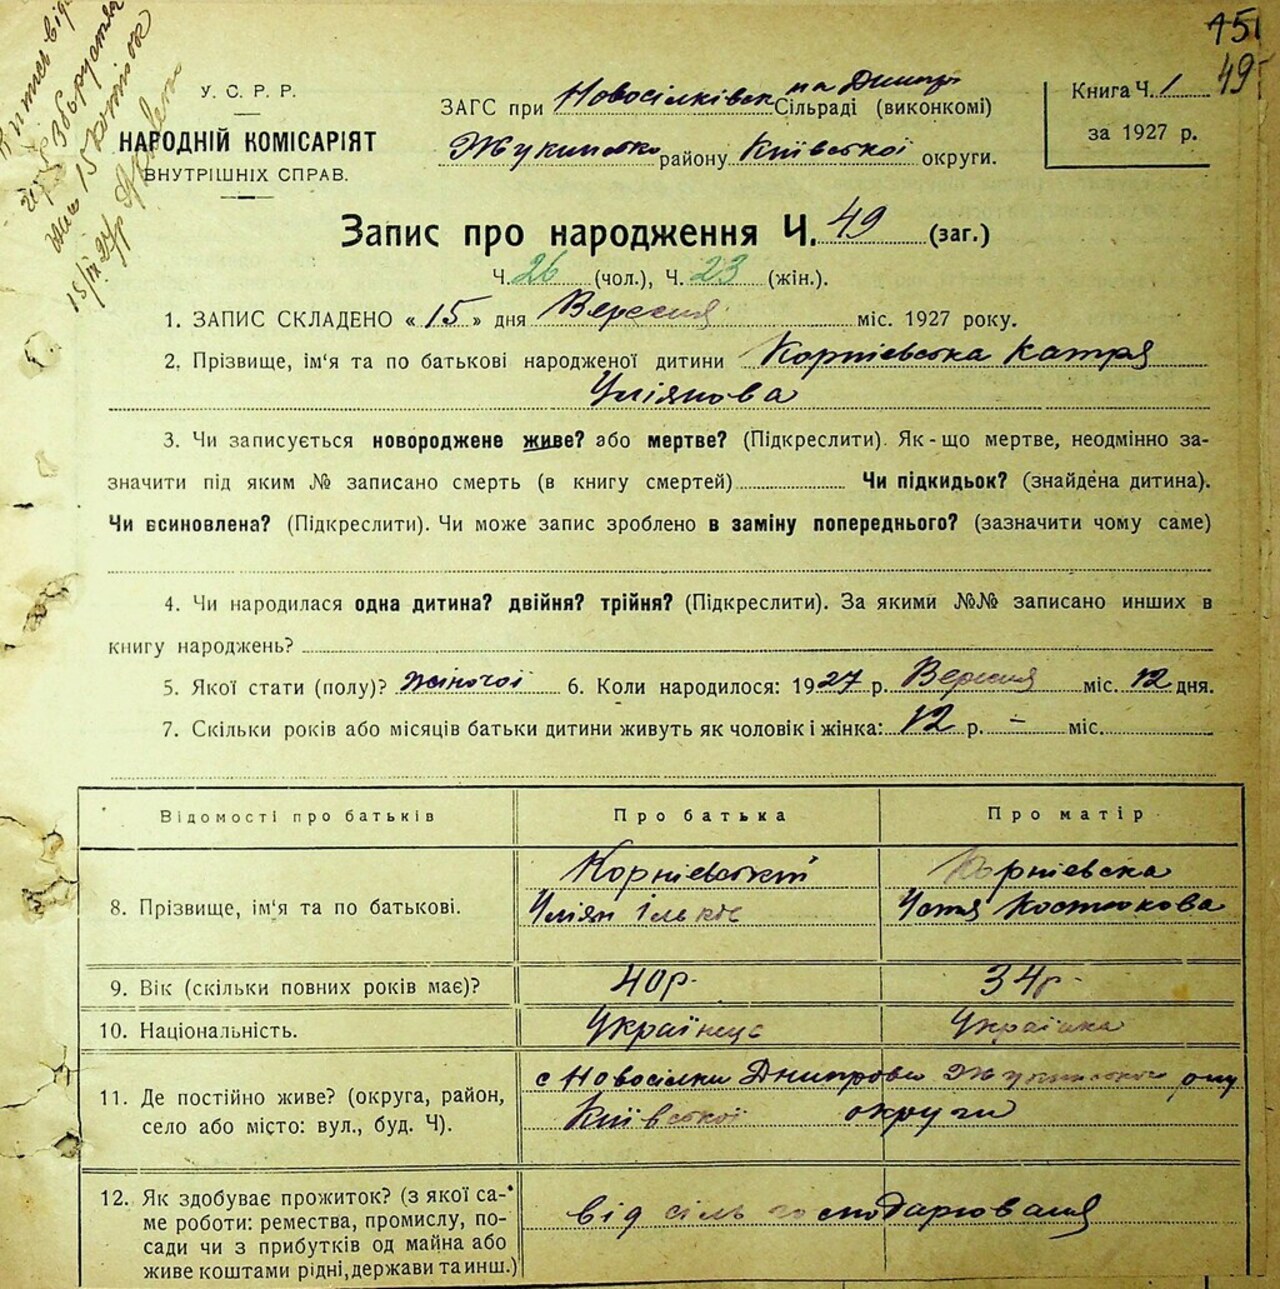 151
49
У. С. Р. Р.
НАРОДНІЙ КОМІСАРІЯТ
ВНУТРІШНІХ СПРАВ.
15 копійок
ЗАГС при Новосілківск на Дніпрі Сільраді (виконкомі)
Жукинсько району Київської округи.
Книга Ч. 1
за 1927 р.
Запис про народження Ч. 49 (заг.)
Ч. 26 (чол.), Ч. 23 (жін.).
1. ЗАПИС СКЛАДЕНО « 15 » дня Вересня міс. 1927 року.
2. Прізвище, ім'я та по батькові народженої дитини Корнієвська Катря
Уліянова
3. Чи записується новороджене живе? або мертве? (Підкреслити). Як-що мертве, неодмінно за-
значити під яким № записано смерть (в книгу смертей) Чи підкидьок? (знайдена дитина).
Чи всиновлена? (Підкреслити). Чи може запис зроблено в заміну попереднього? (зазначити чому саме)
4. Чи народилася одна дитина? двійня? трійня? (Підкреслити). За якими №№ записано инших в
книгу народжень?
5. Якої стати (полу)? жіночої 6. Коли народилося: 1927 р. Вересня міс. 12 дня.
7. Скільки років або місяців батьки дитини живуть як чоловік і жінка: 12 р. – міс.
Відомості про батьків Про батька Про матір
8. Прізвище, ім'я та по батькові. Корнієвський Корнієвска
Уліян Ільків Устя Костюкова
9. Вік (скільки повних років має)? 40 р. 34 р.
10. Національність. Українець Українка
11. Де постійно живе? (округа, район, с Новосілки Дніпрови Жукинського
село або місто: вул., буд. Ч). Київської округи
12. Як здобуває прожиток? (з якої са-
ме роботи: ремества, промислу, по- від сіль господарюваня
сади чи з прибутків од майна або
живе коштами рідні, держави та инш.)